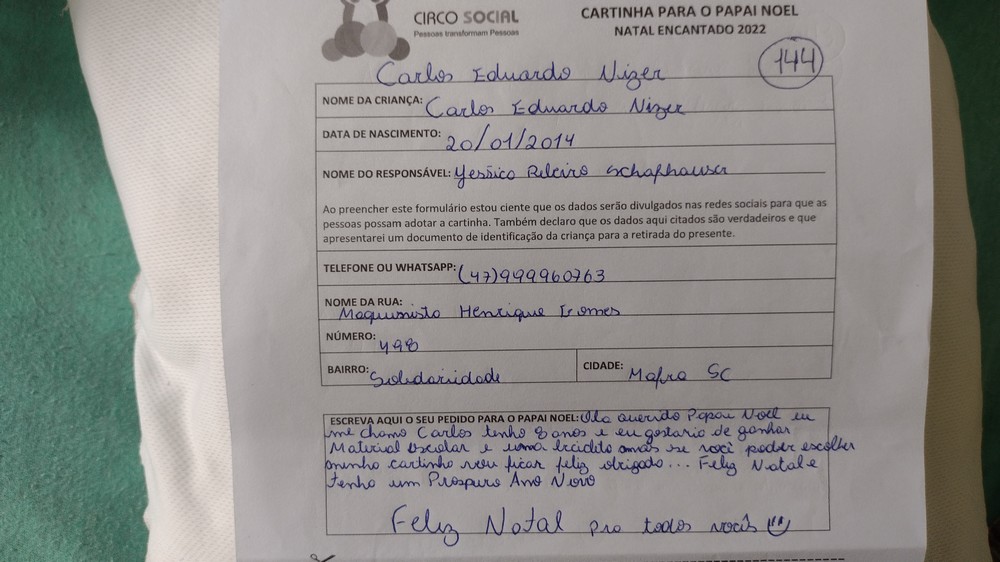 CIRCO SOCIAL
Pessoas transformam Pessoas
CARTINHA PARA O PAPAI NOEL
NATAL ENCANTADO 2022
144
Carlos Eduardo Nizer
NOME DA CRIANÇA: Carlos Eduardo Nizer
DATA DE NASCIMENTO: 20/01/2014
NOME DO RESPONSÁVEL: Yessica Ribeiro Schafhauser
Ao preencher este formulário estou ciente que os dados serão divulgados nas redes sociais para que as
pessoas possam adotar a cartinha. Também declaro que os dados aqui citados são verdadeiros e que
apresentarei um documento de identificação da criança para a retirada do presente.
TELEFONE OU WHATSAPP: (47)999960763
NOME DA RUA: Maquinista Henrique Gomes
NÚMERO: 498
BAIRRO: Solidariedade
CIDADE: Mafra SC
ESCREVA AQUI O SEU PEDIDO PARA O PAPAI NOEL: Ola querido Papai Noel eu
me chamo Carlos tenho 8 anos e eu gostaria de ganhar
Material Escolar e uma mais se você poder escolher
minha cartinha vou ficar feliz obrigado... Feliz Natal e
tenha um Prospero Ano Novo
Feliz Natal pra todos vocês